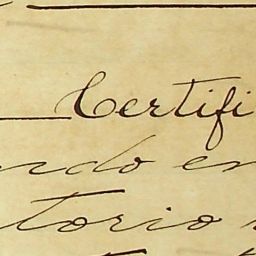 Certifi
ndo en
torio